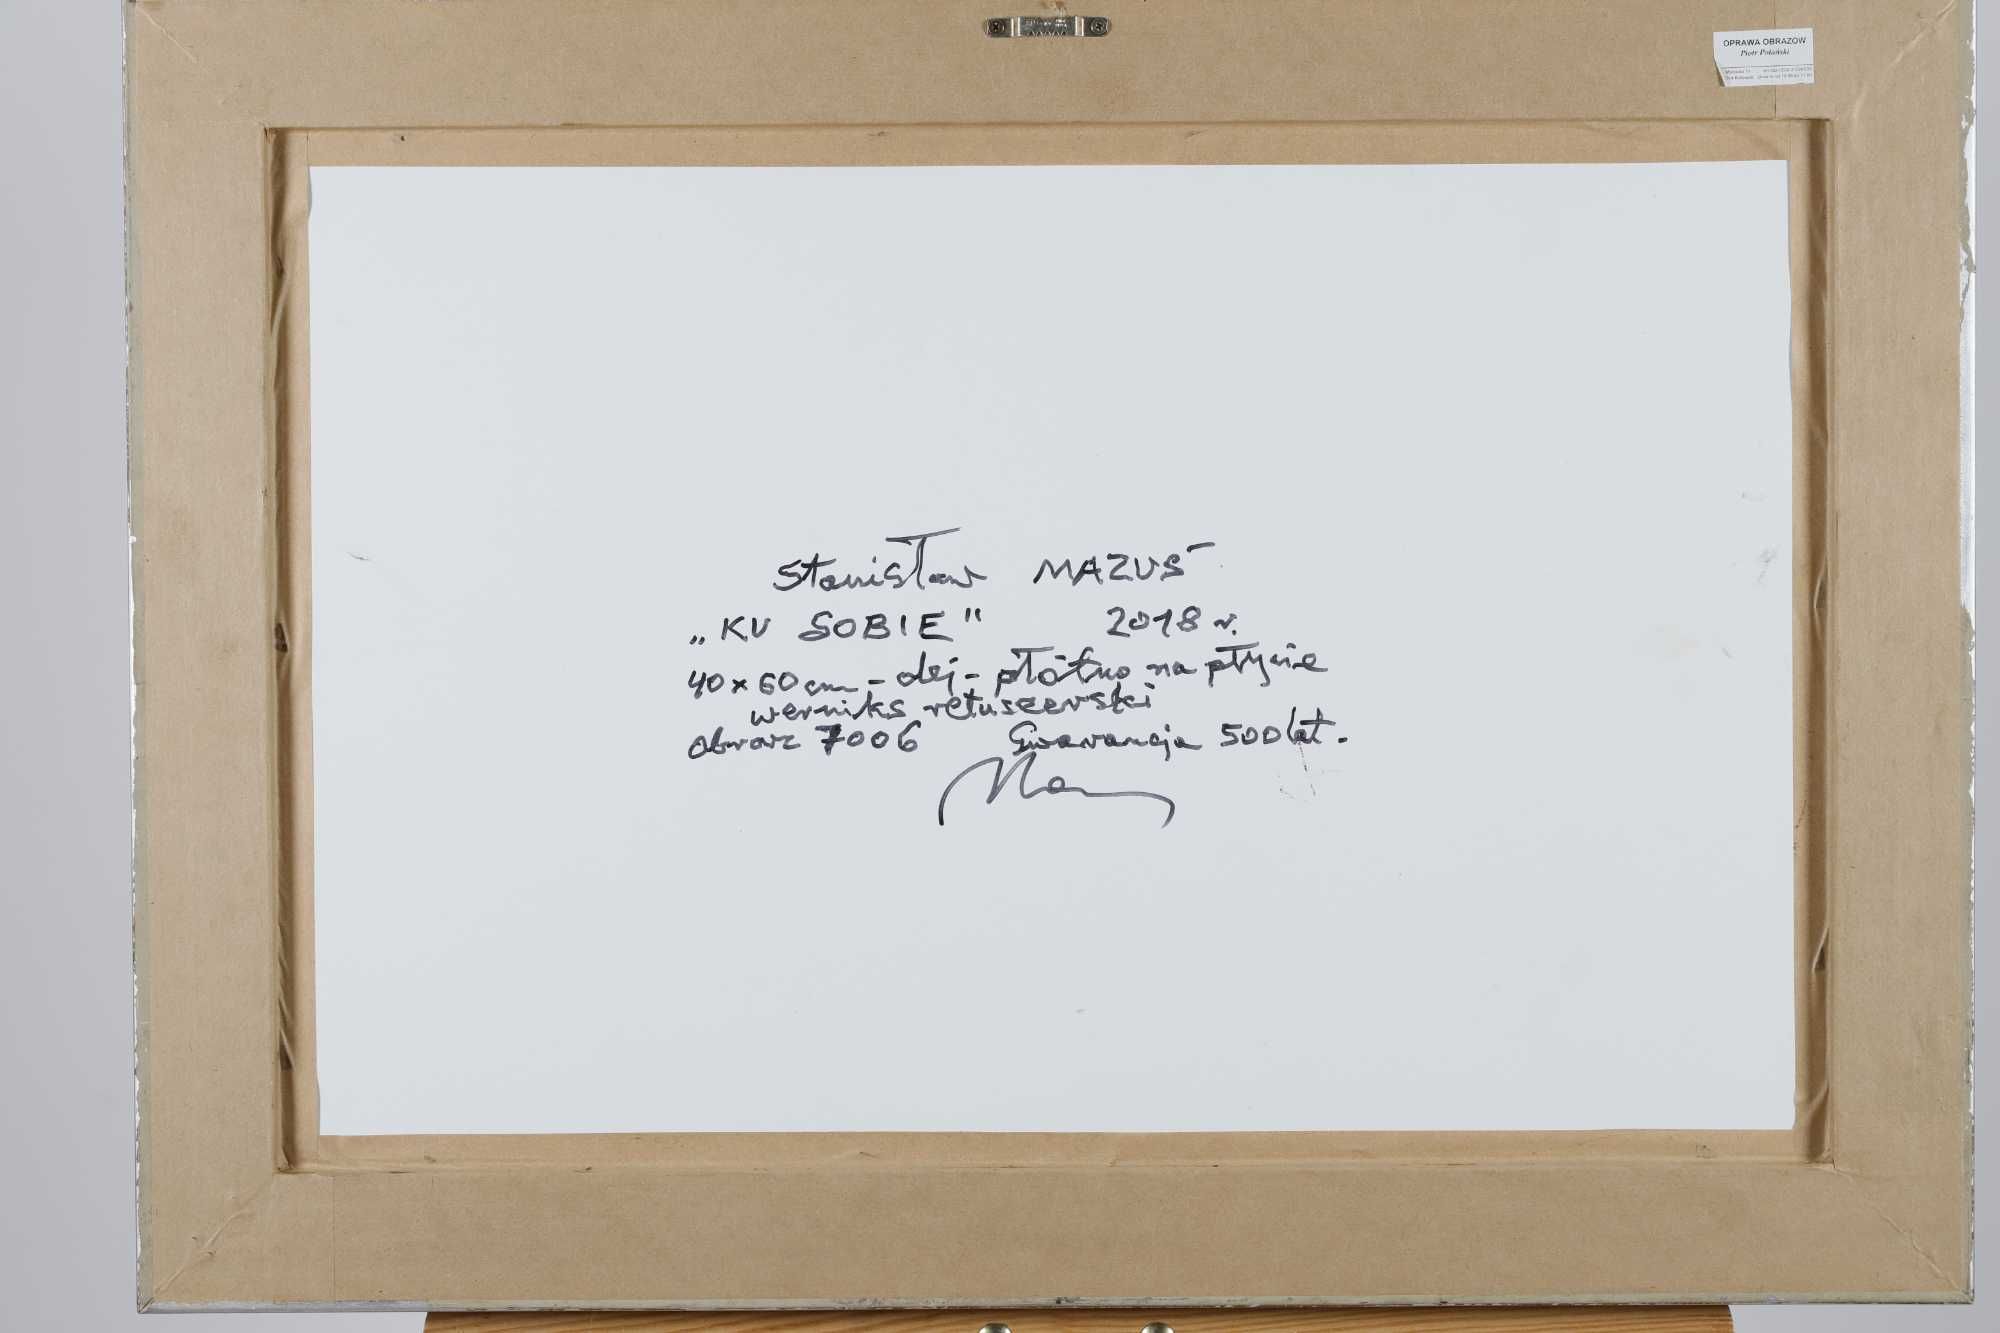 OPRAWA OBRAZOW
Piotr Połoński
Stanisław MAZUŚ
„KU SOBIE" 2018 r.
40 x 60 cm - olej - płótno na płycie
werniks retuszerski
obraz 7006 Gwarancja 500 lat.